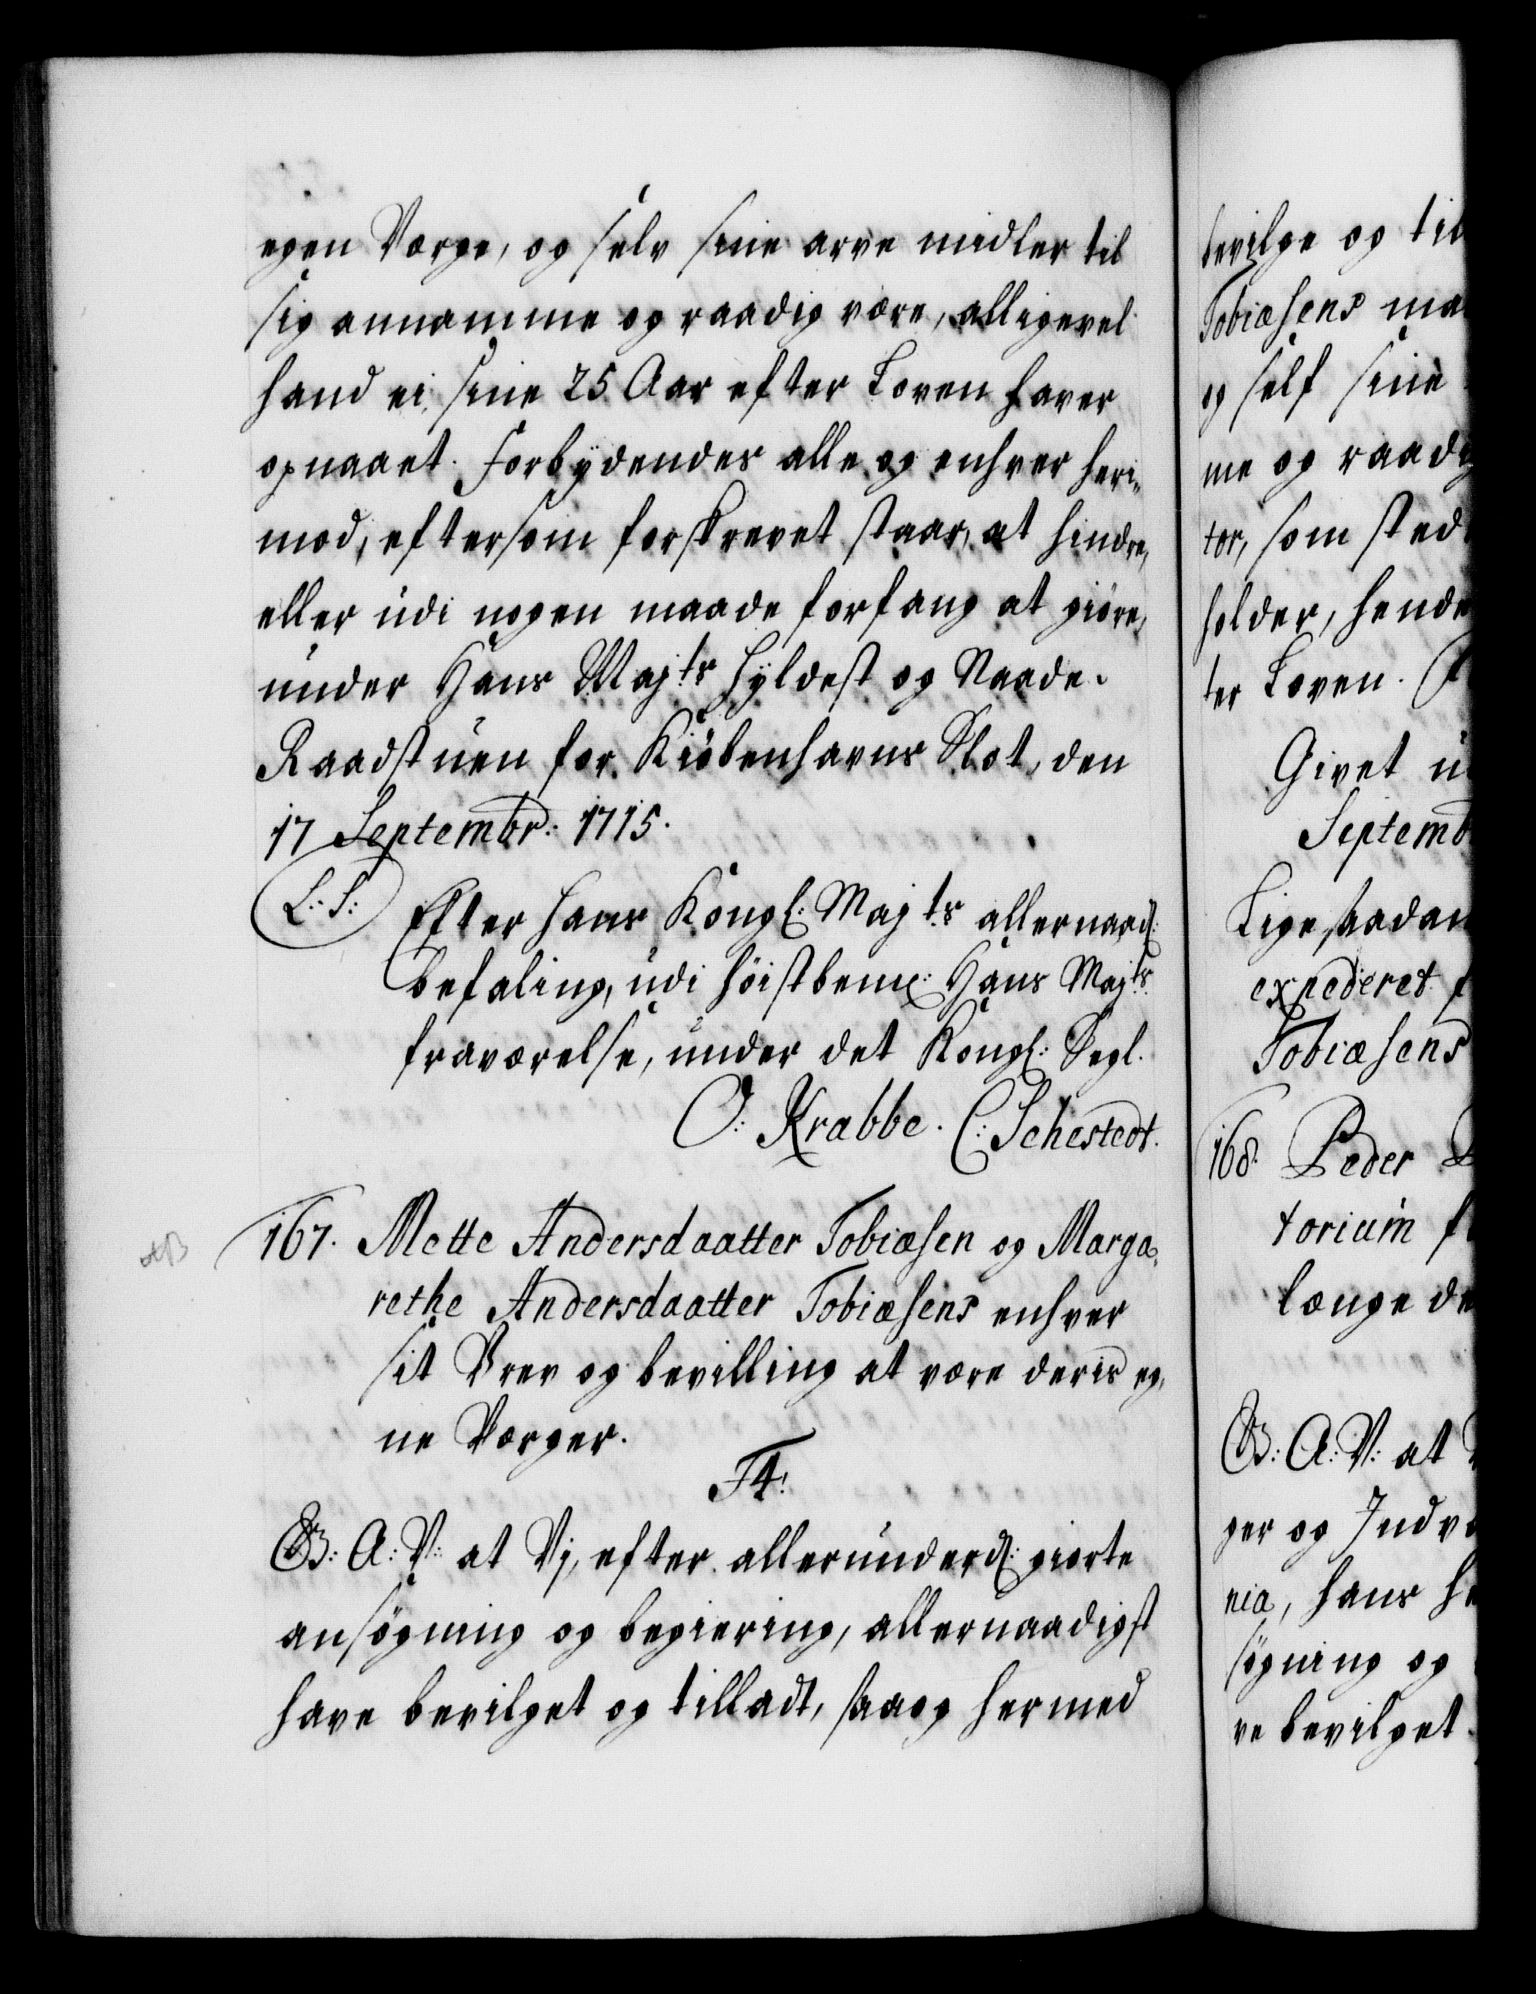 egen Værge, og selv sine arve midler til
sig annamme og raadig være, alligevel
hand ei sine 25 Aar efter Loven haver
opnaaet. Forbydendes alle og enhver heri„
mod, eftersom forskrevet staar, at hindre,
eller udi nogen maade forfang at giøre,
under Hans Majts Hyldest og Naade.
Raadstuen for Kiøbenhavns Slot, den
17 Septembr: 1715.
L: S: Efter hans Kongl: Majts allernaad:
befaling, udi høistbem: Hans Majts
fraværelse, under det Kongl: Segl.
O: Krabbe. C: Sehestedt.
167. Mette Andersdaatter Tobiæsen og Marga„
rethe Andersdaatter Tobiæsens enhver
sit Brev og bevilling at være deris eg„
ne Værger.
F4:
G: A: V: at Vj, efter allerunderd: giorte
ansøgning og begiering, allernaadigst
have bevilget og tilladt, saa og hermed
bevilge og til
Tobiæsens ma
og self sine
me og raad
tor, som sted
holder, hende
ter Loven.
Givet u
Septemb
Lige saadan
expederet f
Tobiæsens
168. Peder
torium f
længe de
G: A: V: at
ger og Indv
nia, hans h
søgning og
ve bevilget